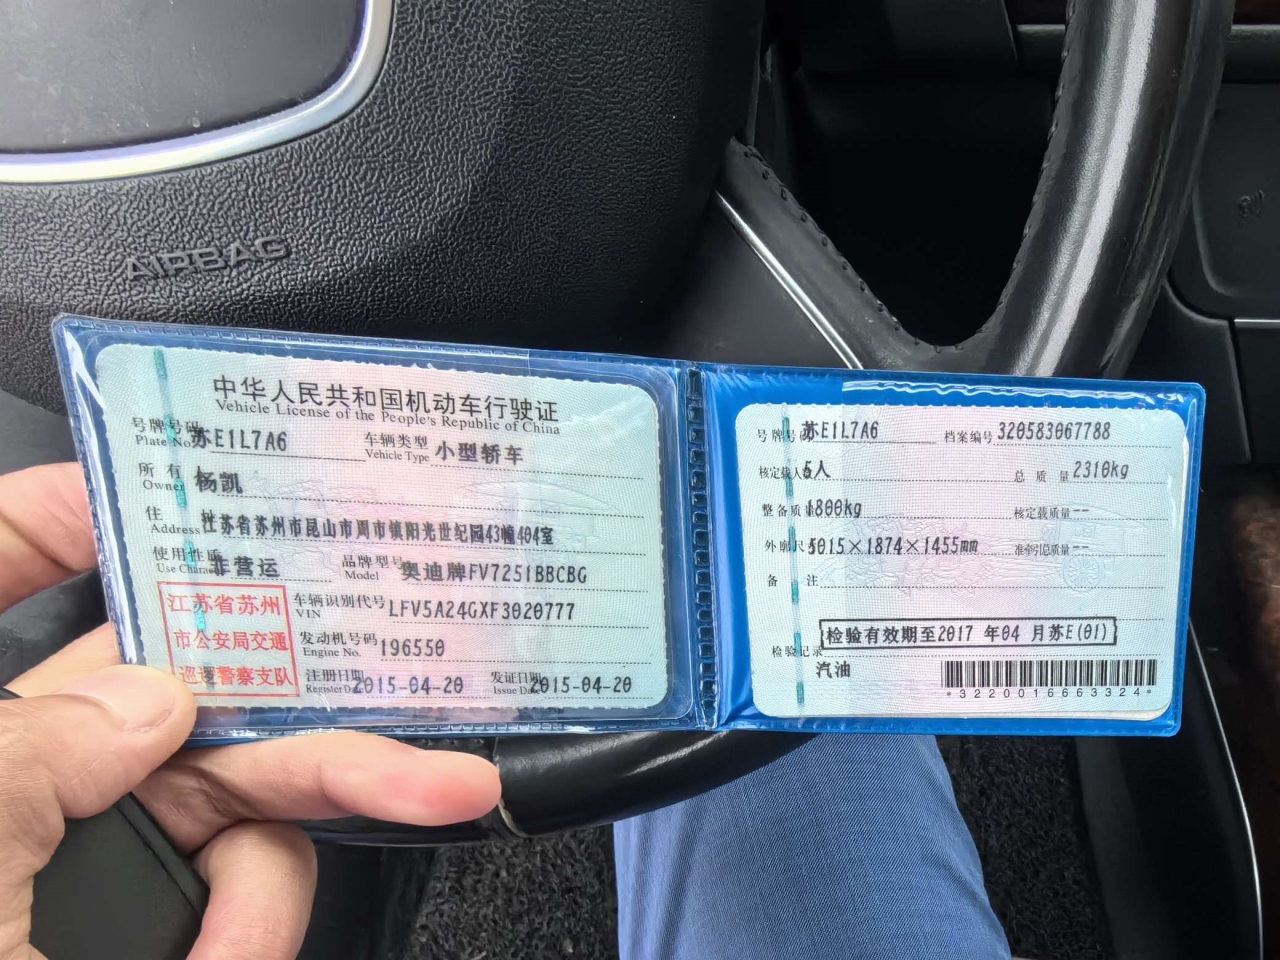 AIRBAG
中华人民共和国机动车行驶证
Vehicle License of the People's Republic of China
号牌号码 苏E1L7A6 车辆类型 小型轿车
Plate No. Vehicle Type
所有 杨凯
Owner
住 址 江苏省苏州市昆山市周市镇阳光世纪园43幢404室
Address
使用性质 非营运 品牌型号 奥迪牌FV7251BBCBG
Use Character Model
江苏省苏州
市公安局交通
巡逻警察支队
车辆识别代号 LFV5A24GXF3020777
VIN
发动机号码 196550
Engine No.
注册日期 2015-04-20 发证日期 2015-04-20
Register Date Issue Date
号牌号码 苏E1L7A6 档案编号 320583067788
核定载人 5人 总质量 2310kg
整备质 1800kg 核定载质量 --
外廓尺 5015×1874×1455mm 准牵引总质量 --
备 注
检验有效期至2017 年04 月苏E(01)
检验记录
汽油
*3220016663324*